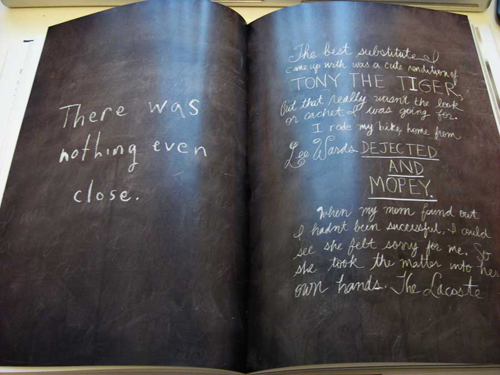 There was
nothing even
close.
The best substitute I
came up with was a cute rendition of
TONY THE TIGER,
but that really wasnt the look
or cachet I was going for.
I rode my bike home from
Lee Wards DEJECTED
AND
MOPEY.
When my mom found out
I hadnt been successful, I could
see she felt sorry for me. So
she took the matter into her
own hands. The Lacoste